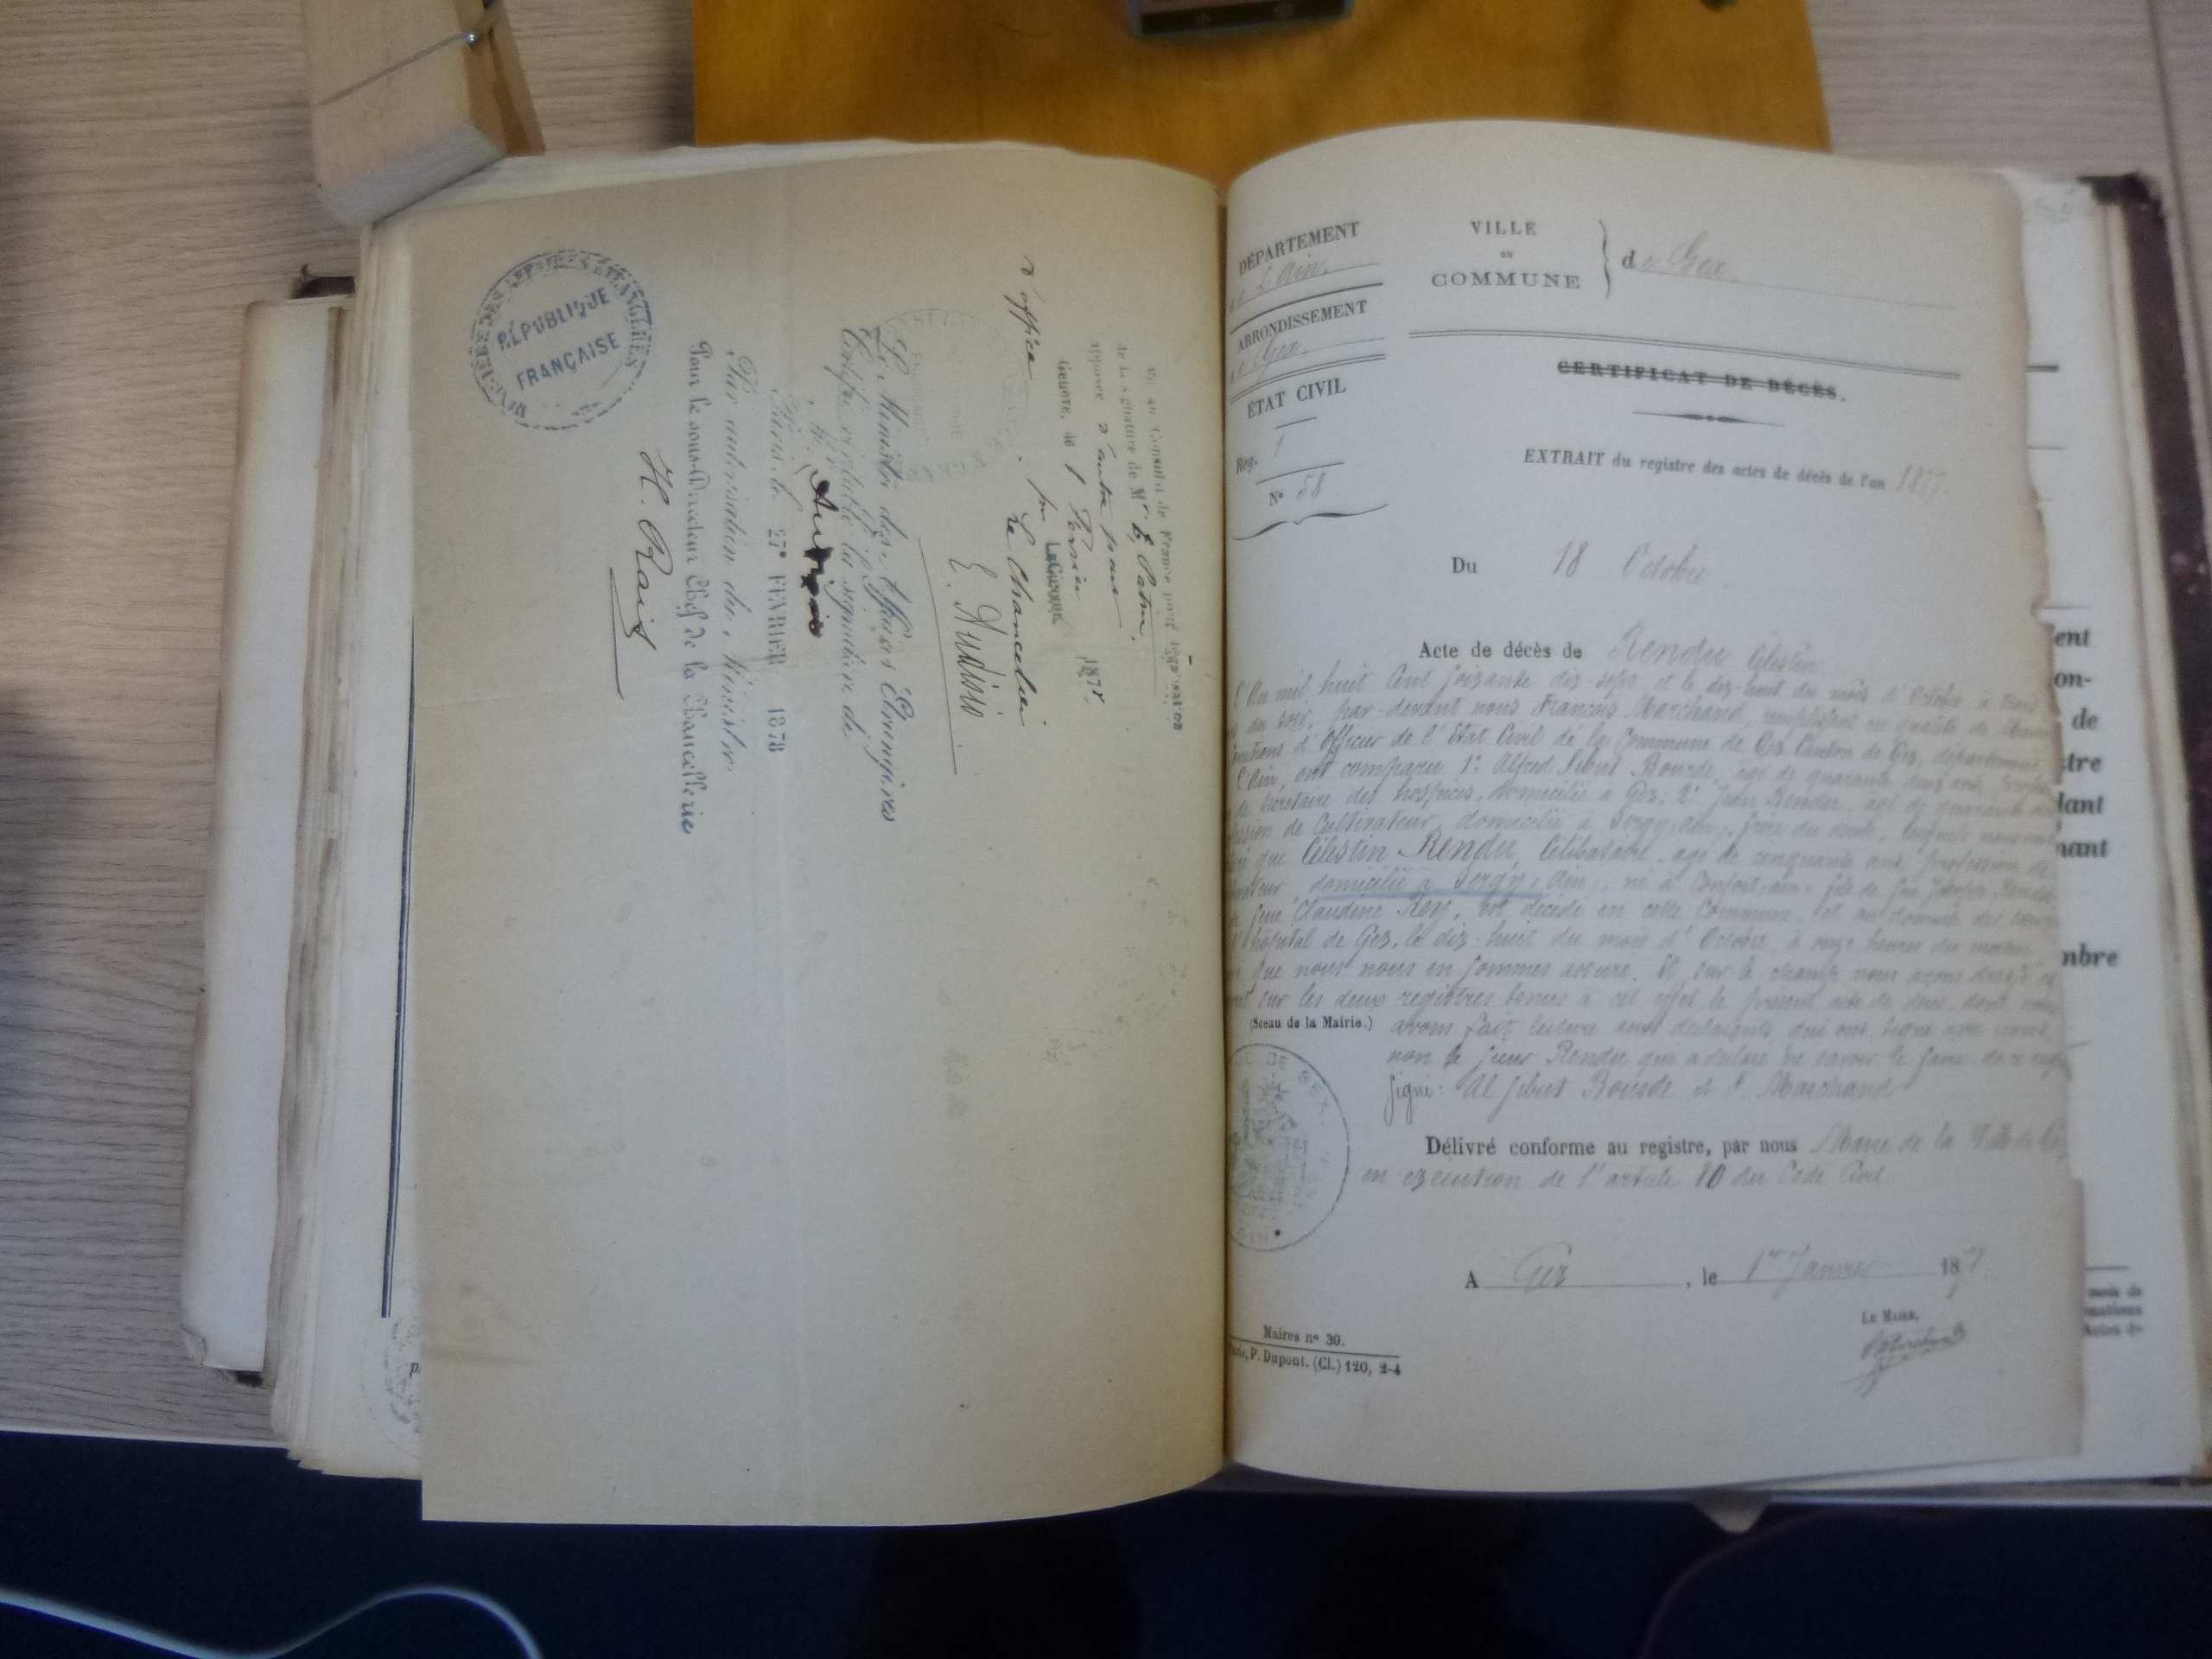 MINISTÈRE DES AFFAIRES ÉTRANGÈRES
RÉPUBLIQUE
FRANÇAISE
Vu au Consulat de France pour légalisation
de la signature de Mr E. Patru,
apposée d'autre part
Genève, le 1 Février 1878
pr
Le Chancelier
d'office
E. Audisio
Le Ministre des Affaires Etrangères
Certifie véritable la signature de
M. Audisio
Paris, le 27 FEVRIER 1878
Par autorisation du Ministre,
Pour le sous-Directeur Chef de la Chancellerie
H. Rais
DÉPARTEMENT
de l'Ain
ARRONDISSEMENT
de Gex
ÉTAT CIVIL
Reg. 1
No 58
VILLE
ou
COMMUNE
de Gex
CERTIFICAT DE DÉCÈS.
EXTRAIT du registre des actes de décès de l'an 1877.
Du 18 Octobre
Acte de décès de Rendu Célestin
L'An mil huit cent soixante dix sept et le dix huit du mois d'Octobre à trois
du soir, par-devant nous François Marchand, remplissant en qualité de Maire
fonctions d'Officier de l'Etat Civil de la Commune de Gex Canton de Gex, département
l'Ain, ont comparu 1° Alfred Sibut Bourde, âgé de quarante deux ans,
de Secrétaire des hospices, domicilié à Gex; 2° Jean Rendu, âgé de quarante
profession de Cultivateur, domicilié à Sergy, Ain, frère du
que Célestin Rendu, Célibataire, âgé de cinquante ans, profession de
domicilié à Sergy, Ain, né à Confort, Ain, fils de feu Joseph Rendu
de feue Claudine Rey, est décédé en cette Commune, et au domicile
l'hôpital de Gex, le dix-huit du mois d'Octobre, à onze heures du matin,
que nous nous en sommes assuré. Et sur le champ nous avons dressé
sur les deux registres tenus à cet effet le présent acte de décès dont nous
(Sceau de la Mairie.) avons fait lecture aux déclarants qui ont signé avec nous
non le sieur Rendu qui a déclaré ne savoir le faire de ce
Signé: Al Sibut Bourde et F. Marchand
Délivré conforme au registre, par nous Maire de la Ville de Gex,
en exécution de l'article 80 du Code Civil.
A Gex, le 1er Janvier 187
LE MAIRE,
Marchand
Maires no 30.
P. Dupont. (Cl.) 120, 2-4
ent
on-
de
tre
dant
nant
mbre
mois de